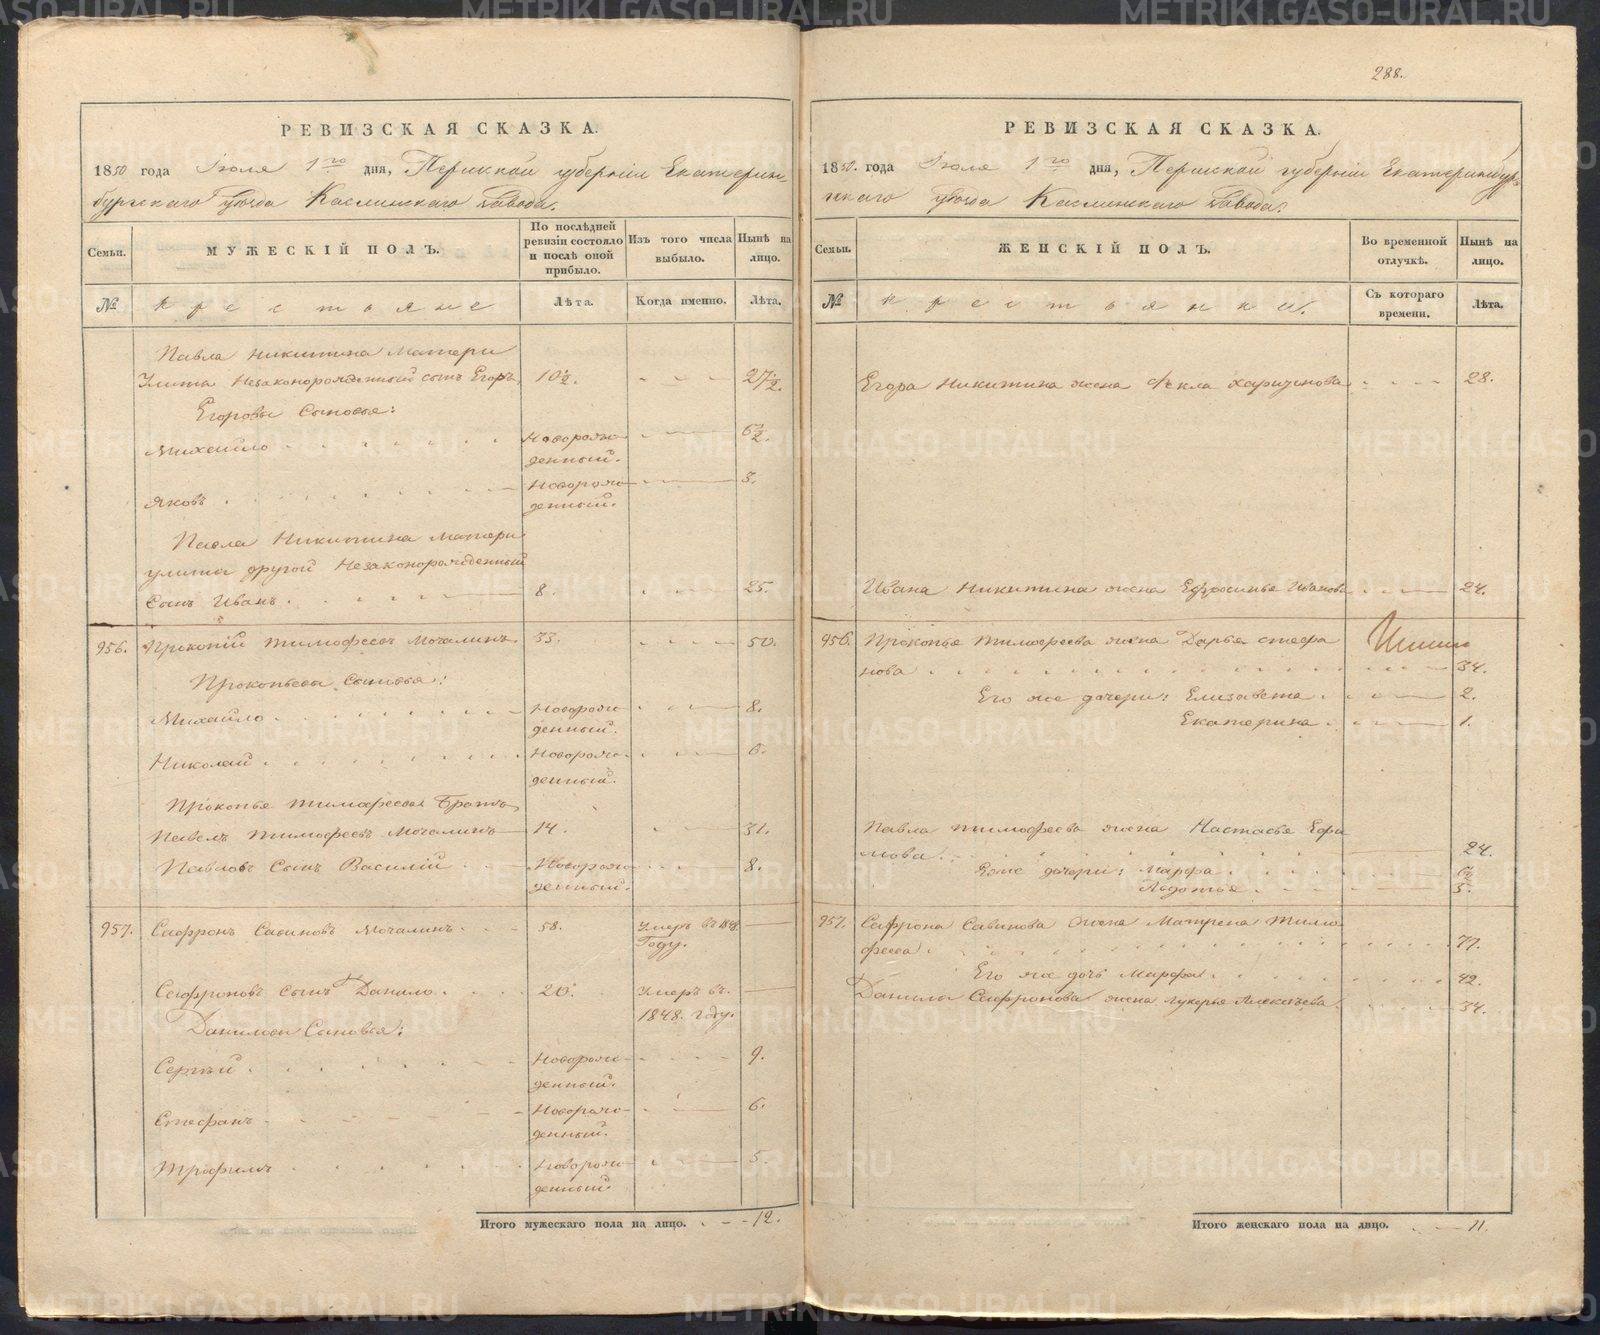 288.
РЕВИЗСКАЯ СКАЗКА.
1850 года Іюля 1го дня, Пермской губерніи Екатерин-
бургскаго уѣзда Каслинскаго Завода.
Семьи.
МУЖЕСКІЙ ПОЛЪ.
По послѣдней ревизіи состояло и послѣ оной прибыло.
Изъ того числа выбыло.
Нынѣ на лицо.
№
крестьяне
Лѣта.
Когда именно.
Лѣта.
Павла Никитина Матери
Улиты Незаконорожденный сынъ Егоръ. 10½. 27½.
Егоровы Сыновья:
Михайло Новорож- 6½.
денный.
Яковъ Новорож- 3.
денный.
Павла Никитина матери
улиты другой Незаконорожденный
Сынъ Иванъ. 8. 25.
956. Прокопій Тимофеевъ Мочалинъ 33. 50.
Прокопьевы Сыновья:
Михайло Новорож- 8.
денный.
Николай Новорож- 6.
денный.
Прокопья Тимофеева Братъ
Павелъ Тимофеевъ Мочалинъ 14. 31.
Павловъ Сынъ Василій Новорож- 8.
денный.
957. Сафронъ Савиновъ Мочалинъ 58. Умеръ въ 1848
Году.
Сафроновъ сынъ Данило 20. Умеръ въ
1848. году.
Даниловы Сыновья:
Сергѣй Новорож- 9.
денный.
Стефанъ Новорож- 6.
денный.
Трофимъ Новорож- 5.
денный.
Итого мужескаго пола на лицо. 12.
РЕВИЗСКАЯ СКАЗКА.
1850. года Іюля 1го дня, Пермской губерніи Екатеринбур-
гскаго уѣзда Каслинскаго Завода.
Семьи.
ЖЕНСКІЙ ПОЛЪ.
Во временной отлучкѣ.
Нынѣ на лицо.
№
крестьянки.
Съ котораго времени.
Лѣта.
Егора Никитина жена Фекла Харитонова 28.
Ивана Никитина жена Ефросинья Иванова 24.
956. Прокопья Тимофеева жена Дарья стефа
нова 34.
Его же дочери: Елизавета 2.
Екатерина 1.
Павла Тимофеева жена Настасья Ефи
мова. 24.
Его же дочери: Марфа 6½
Авдотья 5.
957. Сафрона Савинова жена Матрена Тимо
феева 77.
Его же дочь Марфа 42.
Данилы Сафронова жена Лукерья Алексѣева 34.
Итого женскаго пола на лицо. 11.
METRIKI.GASO-URAL.RU